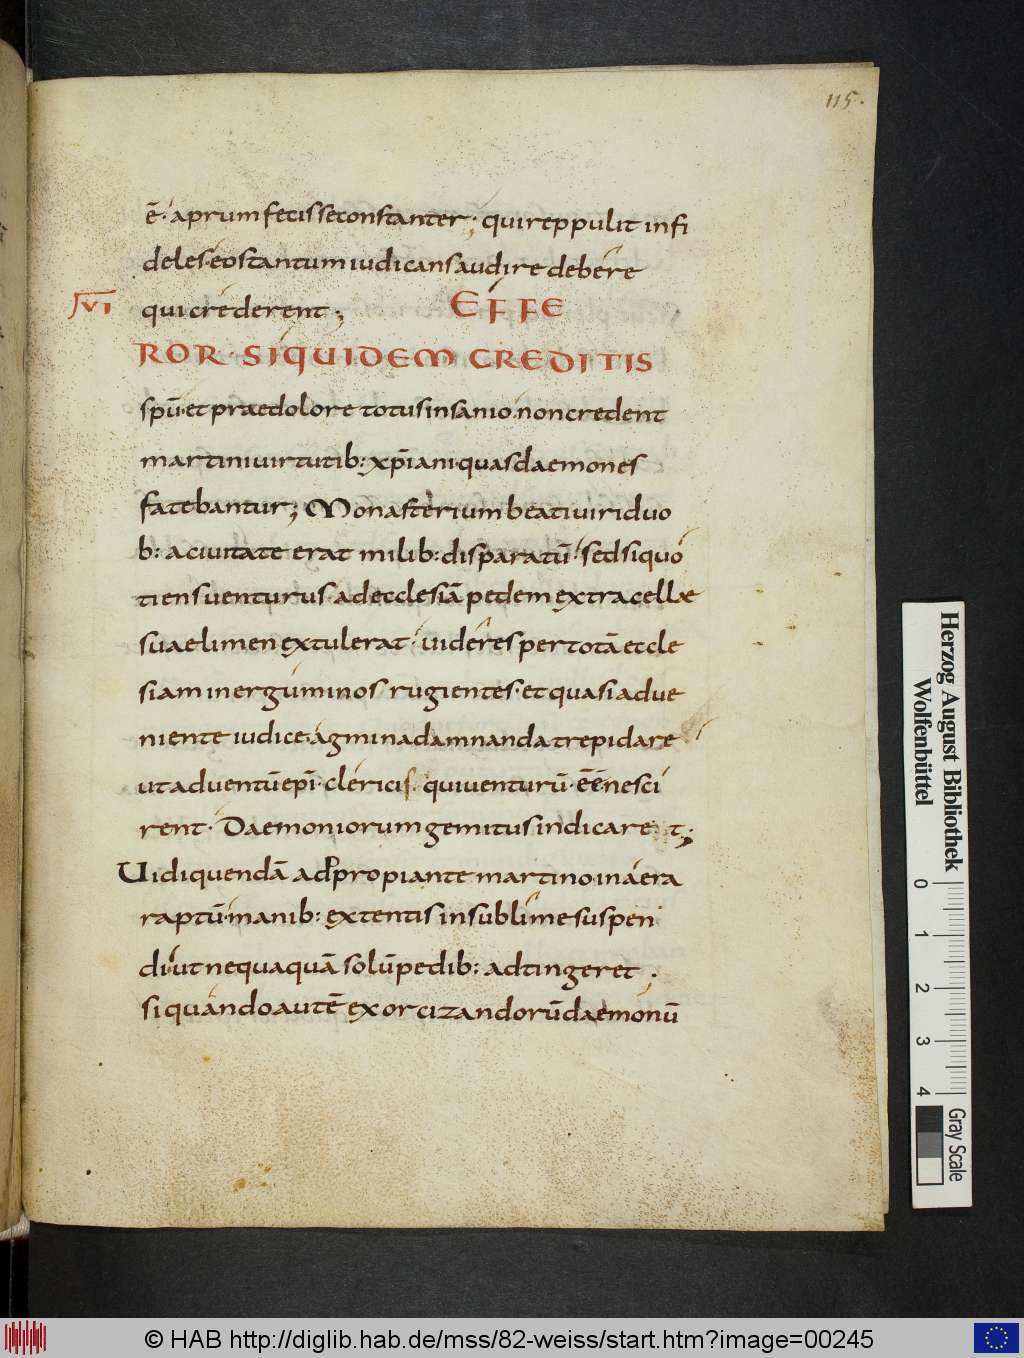 115.
ē· aprum fecisse constanter; qui reppulit infi
deles· eos tantum iudicans audire debere
VI qui crederent; EFFE
ROR· SIQUIDEM CREDITIS
spū· et prae dolore totus insanio· non credent
martini uirtutib: xp̄iani· quas daemones
fatebantur; Monasterium beati uiri duo
b: a ciuitate erat milib: disparatū· sed si quo
tiens uenturus ad ecclesiā pedem extra cellae
suae limen extulerat· uideres per totā eccle
siam inerguminos rugientes· et quasi adue
niente iudice· agmina damnanda trepidare
ut aduentū epī· clericis qui uenturū· eēnesci
rent· Daemoniorum gemitus indicaret;
Uidi quendā adpropiante martino in aera
raptū· manib: extentis in sublime suspen
di· ut nequaquā solū pedib: adtingeret;
si quando autē exorcizandorū daemonū
Herzog August Bibliothek
Wolfenbüttel
0 1 2 3 4
Gray Scale
© HAB http://diglib.hab.de/mss/82-weiss/start.htm?image=00245